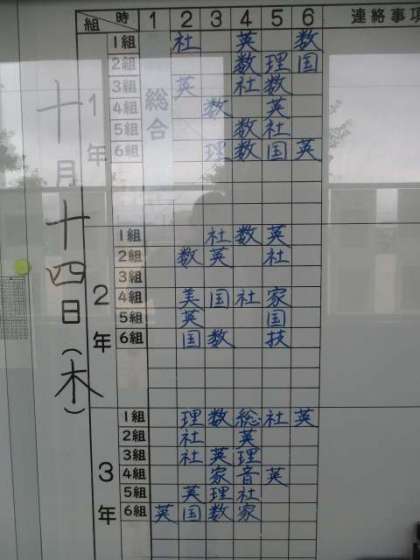 組 時 1 2 3 4 5 6 連絡事項
十月十四日(木)
1年
総合
1組 社 英 数
2組 数 理 国
3組 英 社 数
4組 数 英
5組 数 社
6組 理 数 国 英
2年
1組 社 数 英
2組 数 英 社
3組
4組 美 国 社 家
5組 英 国
6組 国 数 技
3年
1組 理 数 総 社 英
2組 社 英
3組 社 英 理
4組 家 音 英
5組 英 理 社
6組 英 国 数 家